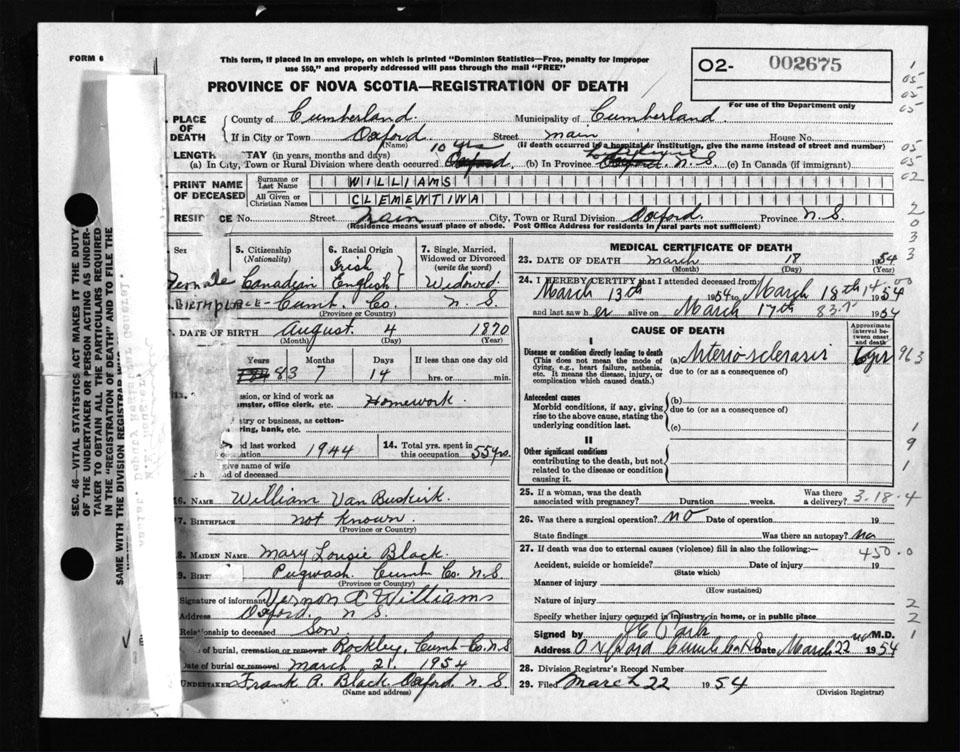 FORM 6
This form, if placed in an envelope, on which is printed "Dominion Statistics—Free, penalty for improper
use $50," and properly addressed will pass through the mail "FREE"
PROVINCE OF NOVA SCOTIA—REGISTRATION OF DEATH
O2- 002675
For use of the Department only
PLACE OF DEATH
County of Cumberland Municipality of Cumberland
If in City or Town Oxford Street main House No.
(Name) (If death occurred in a hospital or institution, give the name instead of street and number)
LENGTH STAY (in years, months and days) 10 yrs
(a) In City, Town or Rural Division where death occurred Oxford. (b) In Province N.S (c) In Canada (if immigrant)
PRINT NAME OF DECEASED
Surname or Last Name WILLIAMS
All Given or Christian Names CLEMENTINA
RESIDENCE No. Street Main City, Town or Rural Division Oxford. Province N.S
(Residence means usual place of abode. Post Office Address for residents in rural parts not sufficient)
Sex Female
5. Citizenship (Nationality) Canadian
6. Racial Origin Irish English
7. Single, Married, Widowed or Divorced (write the word) Widowed
BIRTHPLACE Cumb. Co. N S
(Province or County)
DATE OF BIRTH August 4 1870
(Month) (Day) (Year)
Years Months Days If less than one day old
83 7 14 hrs. or min.
ssion, or kind of work as
amster, office clerk, etc. Homework.
try or business, as cotton-
ring, bank, etc.
ed last worked 1944
14. Total yrs. spent in this occupation 55 yrs.
give name of wife
nd of deceased
16. NAME William Van Buskirk.
17. BIRTHPLACE not known.
(Province or County)
18. MAIDEN NAME Mary Lousie Black.
19. BIRT Pugwash. Cumb Co. N.S.
(Province or County)
Signature of informant Vernon C Williams
Address Oxford. N S.
Relationship to deceased Son
of burial, cremation or removal Rockley, Cumb-Co. N.S
Date of burial or removal March 21. 1954
UNDERTAKER Frank A. Black Oxford N. S.
(Name and address)
MEDICAL CERTIFICATE OF DEATH
23. DATE OF DEATH march 18 1954
(Month) (Day) (Year)
24. I HEREBY CERTIFY that I attended deceased from
March 13th 1954 to March 18th 1954
and last saw her alive on March 17th 1954
CAUSE OF DEATH
Approximate interval between onset and death
I
Disease or condition directly leading to death
(This does not mean the mode of dying, e.g., heart failure, asthenia, etc. It means the disease, injury, or complication which caused death.)
(a) Arterio-sclerosis 963
due to (or as a consequence of)
Antecedent causes
Morbid conditions, if any, giving rise to the above cause, stating the underlying condition last.
(b)
due to (or as a consequence of)
(c)
II
Other significant conditions
contributing to the death, but not related to the disease or condition causing it.
25. If a woman, was the death associated with pregnancy? Duration weeks. Was there a delivery? 3-18-4
26. Was there a surgical operation? no Date of operation 19
State findings Was there an autopsy? no
27. If death was due to external causes (violence) fill in also the following:— 450.0
Accident, suicide or homicide? Date of injury 19
(State which)
Manner of injury
(How sustained)
Nature of injury
Specify whether injury occurred in industry, in home, or in public place
Signed by Park M.D.
Address Oxford Cumb Co NS Date March 22 1954
28. Division Registrar's Record Number
29. Filed March 22 1954
(Division Registrar)
SEC. 46—VITAL STATISTICS ACT MAKES IT THE DUTY
OF THE UNDERTAKER OR PERSON ACTING AS UNDER-
TAKER TO OBTAIN ALL THE PARTICULARS REQUIRED
IN THE "REGISTRATION OF DEATH" AND TO FILE THE
SAME WITH THE DIVISION REGISTRAR